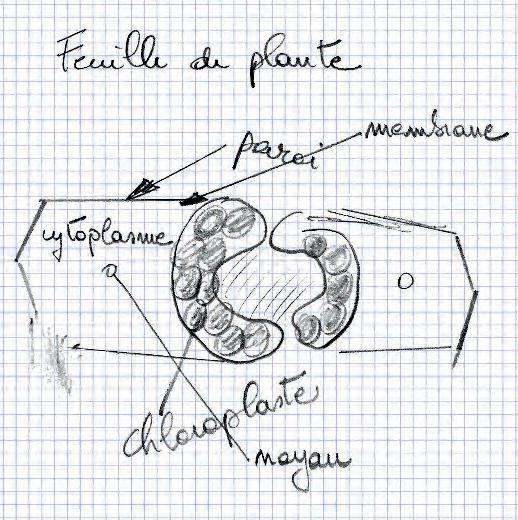 Feuille de plante
membrane
paroi
cytoplasme
chloroplaste
noyau